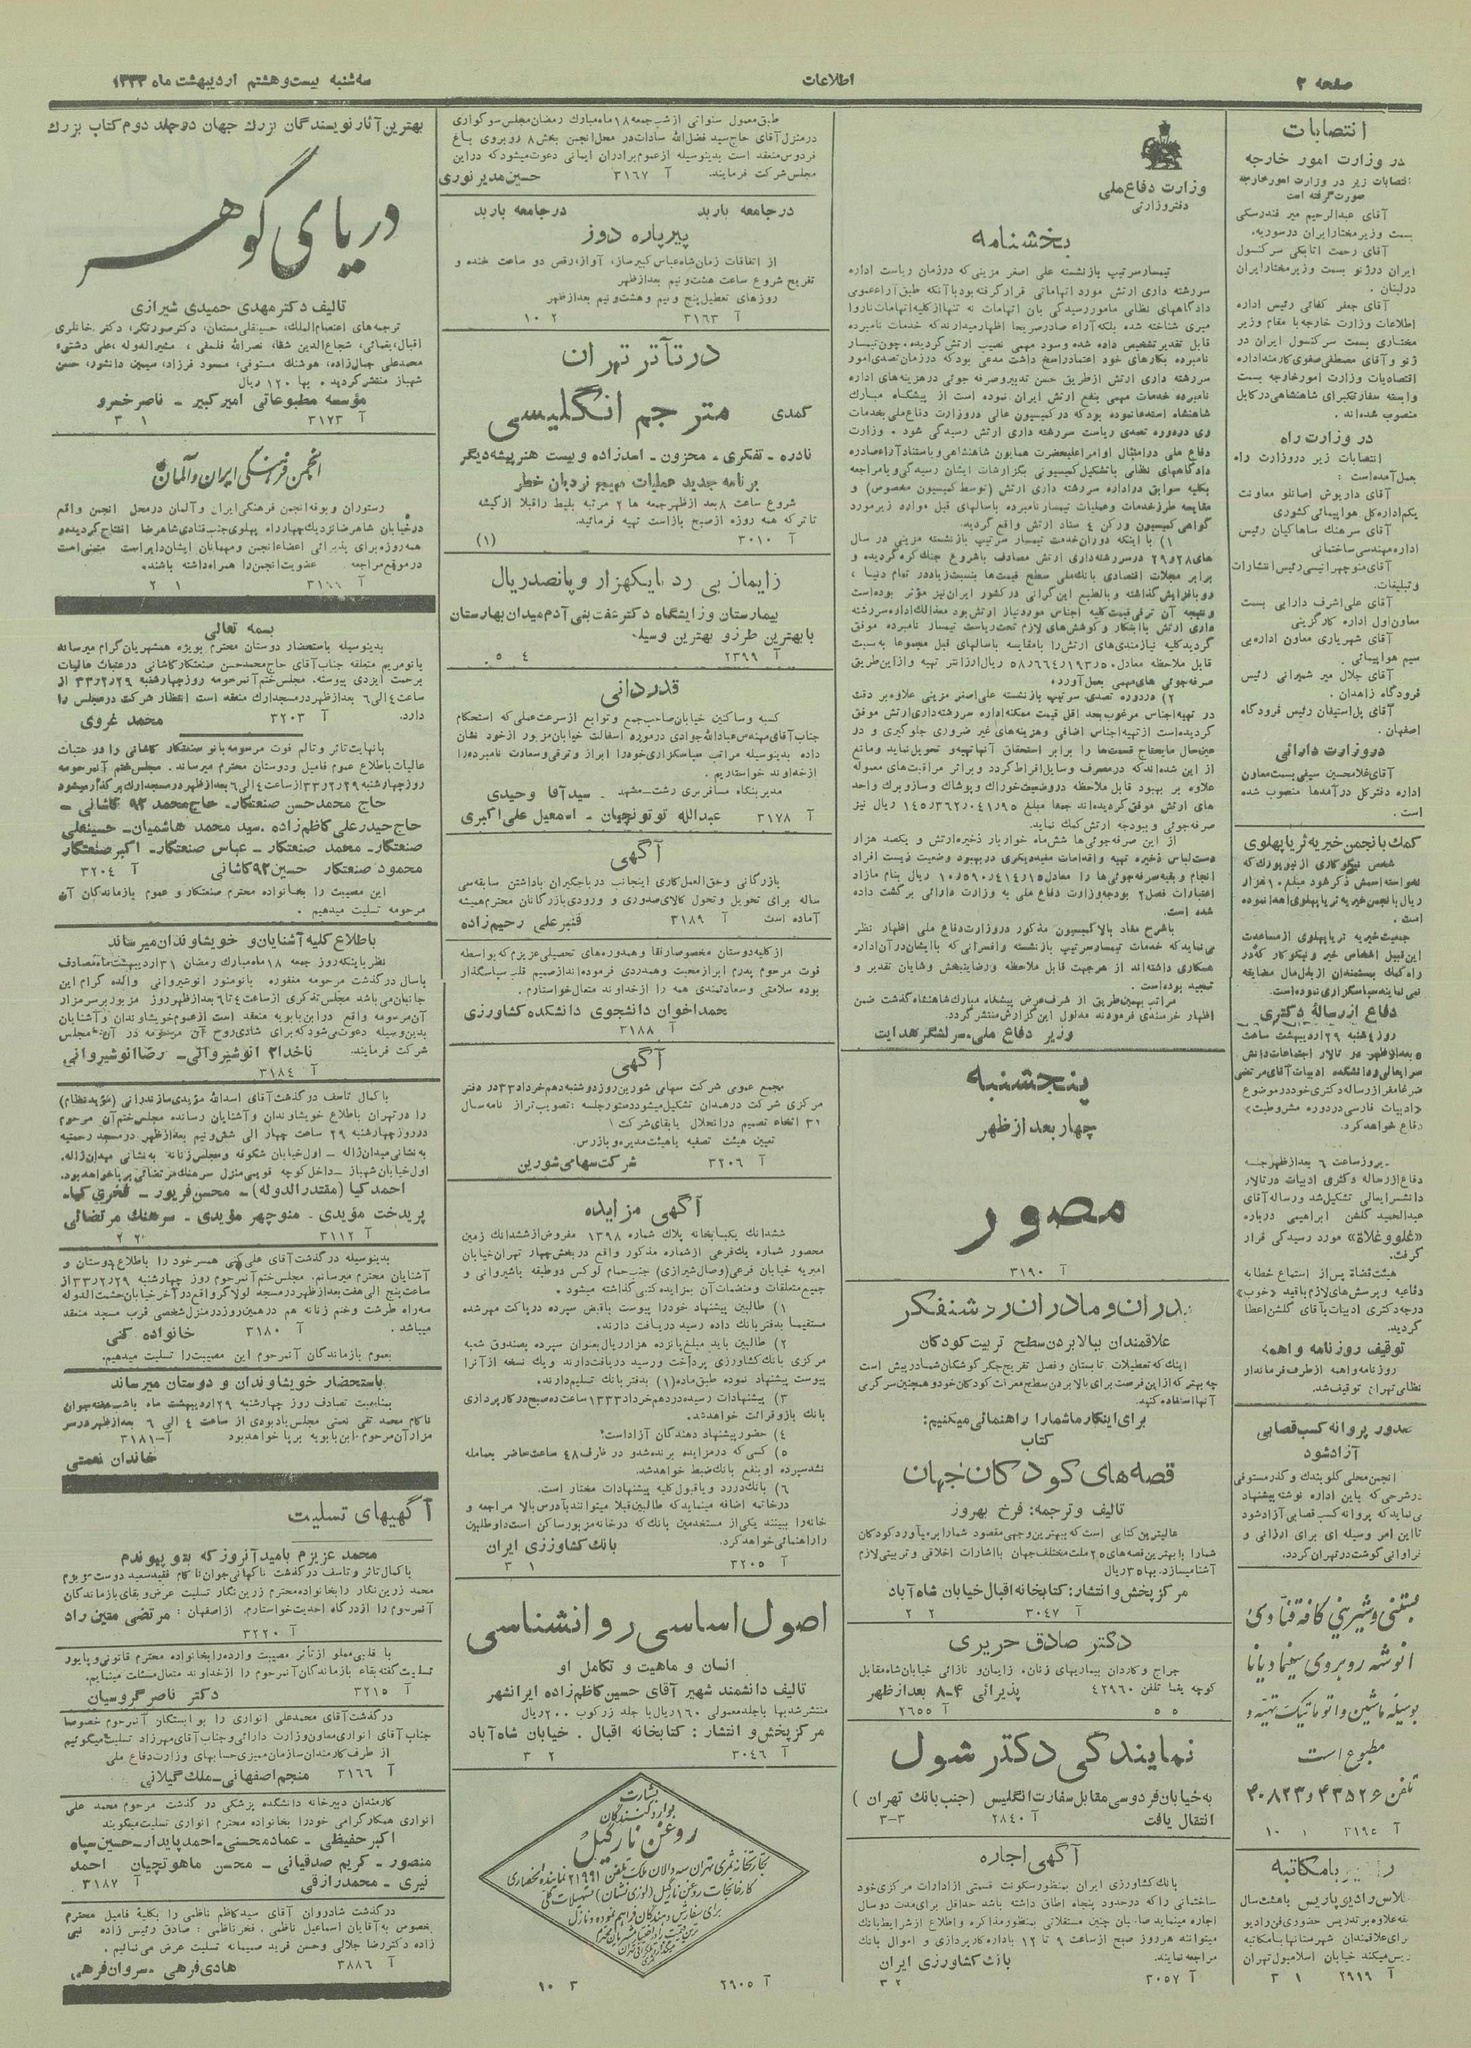 صفحه ۲
اطلاعات
سه‌شنبه بیست و هشتم اردیبهشت ماه ۱۳۳۳
انتصابات
در وزارت امور خارجه
انتصابات زیر در وزارت امور خارجه
صورت گرفته است
آقای عبدالرحیم میر فندرسکی
بسمت وزیر مختار ایران در سوریه.
آقای رحمت اتابکی سر کنسول
ایران در ژنو بسمت وزیر مختار ایران
در لبنان.
آقای جعفر کفائی رئیس اداره
اطلاعات وزارت خارجه با مقام وزیر
مختاری بسمت سر کنسول ایران در
ژنو و آقای مصطفی صفوی کارمند اداره
اقتصادیات وزارت امور خارجه بسمت
وابسته سفارتکبرای شاهنشاهی در کابل
منصوب شده‌اند.
در وزارت راه
انتصابات زیر در وزارت راه
بعمل آمده است:
آقای داریوش اصانلو معاونت
یکم اداره کل هواپیمائی کشوری
آقای سرهنگ ساهاکیان رئیس
اداره مهندسی ساختمانی
آقای منوچهر انیسی رئیس انتشارات
و تبلیغات.
آقای علی اشرف دارایی بسمت
معاون اول اداره کارگزینی
آقای شهریاری معاون اداره بی
سیم هواپیمائی.
آقای جلال میر شمیرانی رئیس
فرودگاه زاهدان.
آقای پل استیفان رئیس فرودگاه
اصفهان.
در وزارت دارائی
آقای غلامحسین سیفی بسمت معاون
اداره دفتر کل درآمدها منصوب شده
است.
کمک بانجمن خیریه ثریا پهلوی
شخص نیکوکاری از نیویورک که
نخواسته اسمش ذکر شود مبلغ ۱۰ هزار
ریال بانجمن خیریه ثریا پهلوی اهدا نموده
است.
جمعیت خیریه ثریا پهلوی از مساعدت
این قبیل اشخاص خیر و نیکوکار که در
راه کمک بمستمندان از بذل مال مضایقه
نمی نمایند سپاسگزاری نموده است.
دفاع از رسالهٔ دکتری
روز ۴ شنبه ۲۹ اردیبهشت ساعت
۵ بعد از ظهر در تالار اجتماعات دانش
سرایعالی و دانشکده ادبیات آقای مرتضی
ضرغامفر از رساله دکتری خود در موضوع
«ادبیات فارسی در دوره مشروطیت»
دفاع خواهد کرد.
پریروز ساعت ۶ بعد از ظهر جلسه
دفاع از رساله دکتری ادبیات در تالار
دانشسرایعالی تشکیل شد و رساله آقای
عبدالحمید گلشن ابراهیمی درباره
«غلو و غلاة» مورد رسیدگی قرار
گرفت.
هیئت قضاة پس از استماع خطابه
دفاعیه و پرسش های لازم باقید «خوب»
درجه دکتری ادبیات بآقای گلشن اعطا
گردید.
توقیف روزنامه واهمه
روزنامه واهمه از طرف فرماندار
نظامی تهران توقیف شد.
صدور پروانه کسب قصابی
آزاد شود
انجمن محلی کلوبندک و گذر مستوفی
در شرحی که باین اداره نوشته پیشنهاد
می نماید که پروانه کسب قصابی آزاد شود
تا این امر وسیله ای برای ارزانی و
فراوانی گوشت در تهران گردد.
بستنی و شیرینی کافه قنادی
انوشه روبروی سینما دیانا
بوسیله ماشین و اتوماتیک تهیه و
مطبوع است
تلفن ۴۳۵۲۶ و ۴۰۸۲۳
آ ۳۱۹۵ ۱ ۱۰
بامکاتبه
کلاس رادیو پاریس با هشت سال
سابقه علاوه بر تدریس حضوری فن رادیو
برای علاقمندان شهرستانها بامکاتبه
تدریس میکند خیابان اسلامبول تهران
آ ۲۹۱۹ ۱ ۳
وزارت دفاع ملی
دفتر وزارتی
بخشنامه
تیمسار سرتیپ بازنشسته علی اصغر مزینی که در زمان ریاست اداره
سر رشته داری ارتش مورد اتهاماتی قرار گرفته بود با آنکه طبق آراء عمومی
دادگاههای نظامی مامور رسیدگی بان اتهامات نه تنها از کلیه اتهامات ناروا
مبری شناخته شده بلکه آراء صادر صریحا اظهار میدارند که خدمات نامبرده
قابل تقدیر تشخیص داده شده و سود مهمی نصیب ارتش گردیده. چون تیمسار
نامبرده بکارهای خود اعتماد راسخ داشت مدعی بود که در زمان تصدی امور
سر رشته داری ارتش از طریق حسن تدبیر و صرفه جوئی در هزینه های اداره
نامبرده خدمات مهمی بنفع ارتش ایران نموده است از پیشگاه مبارک
شاهنشاه استدعا نموده بود که در کمیسیون عالی در وزارت دفاع ملی بخدمات
وی در دوره تصدی ریاست سر رشته داری ارتش رسیدگی شود. وزارت
دفاع ملی در امتثال اوامر اعلیحضرت همایون شاهنشاهی و باستناد آراء صادره
دادگاههای نظامی باتشکیل کمیسیونی بگزارشات ایشان رسیدگی و بامراجعه
بکلیه سوابق در اداره سر رشته داری ارتش (توسط کمیسیون مخصوص) و
مقایسه طرز خدمات و عملیات تیمسار نامبرده باسالهای قبل موارد زیر مورد
گواهی کمیسیون و رکن ۴ ستاد ارتش واقع گردید.
۱) با اینکه دوران خدمت تیمسار سرتیپ بازنشسته مزینی در سال
های ۲۸ و ۲۹ در سر رشته داری ارتش مصادف باشروع جنگ کره گردیده و
برابر مجلات اقتصادی بانک ملی سطح قیمت ها بنسبت زیاد در تمام دنیا،
رو بافزایش گذاشته و بالطبع این گرانی در کشور ایران نیز مؤثر بوده است
و نتیجه آن ترقی قیمت کلیه اجناس مورد نیاز ارتش بود معذالک اداره سر رشته
داری ارتش با ابتکار و کوشش های لازم تحت ریاست تیمسار نامبرده موفق
گردید کلیه نیازمندی های ارتش را بامقایسه باسالهای قبل مجموعا به نسبت
قابل ملاحظه معادل ۵۸٫۶۶۴٫۱۹۳٫۵۰ ریال ارزانتر تهیه و از این طریق
صرفه جوئی های مهمی بعمل آورد.
۲) در دوره تصدی سرتیپ بازنشسته علی اصغر مزینی علاوه بر دقت
در تهیه اجناس مرغوب بحد اقل قیمت ممکنه اداره سر رشته داری ارتش موفق
گردیده است از تهیه اجناس اضافی و هزینه های غیر ضروری جلوگیری و در
عین حال مایحتاج قسمت ها را برابر استحقاق آنها تهیه و تحویل نماید و مانع
از این شده اند که در مصرف وسایل افراط گردد و برابر مراقبت های معموله
علاوه بر بهبود قابل ملاحظه در وضعیت خوراک و پوشاک و ساز و برگ واحد
های ارتش موفق گردیده اند جمعا مبلغ ۱۴۵٫۳۶۲٫۰۴۱٫۹۵ ریال نیز
صرفه جوئی و ببودجه ارتش کمک نماید.
از این صرفه جوئی ها شش ماه خواربار ذخیره ارتش و یکصد هزار
دست لباس ذخیره تهیه و اقدامات مفیده دیگری در بهبود وضعیت زیست افراد
انجام و بقیه صرفه جوئی ها را معادل ۱۰٫۵۹۰٫۴۱۴٫۱۵ ریال بنام مازاد
اعتبارات فصل ۲ بودجه وزارت دفاع ملی به وزارت دارائی برگشت داده
شده است.
باشرح مفاد بالا کمیسیون مذکور در وزارت دفاع ملی اظهار نظر
می نماید که خدمات تیمسار سرتیپ بازنشسته و افسرانی که با ایشان در آن اداره
همکاری داشته اند از هر جهت قابل ملاحظه و رضایتبخش و شایان تقدیر و
تمجید بوده است.
مراتب بهمین طریق از شرف عرض پیشگاه مبارک شاهنشاه گذشت ضمن
اظهار خرسندی فرمودند مدلول این گزارش منتشر گردد.
وزیر دفاع ملی- سرلشگر هدایت
پنجشنبه
چهار بعد از ظهر
مصور
آ ۳۱۹۰
پدران و مادران روشنفکر
علاقمندان ببالا بردن سطح تربیت کودکان
اینک که تعطیلات تابستان و فصل تفریح جگر گوشگان شما در پیش است
چه بهتر که از این فرصت برای بالا بردن سطح معرفت کودکان خود و همچنین سرگرمی
آنها استفاده کنید.
برای اینکار ما شما را راهنمائی میکنیم:
کتاب
قصه های کودکان جهان
تالیف و ترجمه: فرخ بهروز
عالیترین کتابی است که بهترین وجهی مقصود شما را برمی آورد کودکان
شما را با بهترین قصه های ۲۵ ملت مختلف جهان با اشارات اخلاقی و تربیتی لازم
آشنا میسازد. بها ۳۵ ریال
مرکز پخش و انتشار: کتابخانه اقبال خیابان شاه آباد
آ ۳۰۴۷ ۲ ۲
دکتر صادق حریری
جراح و کاردان بیماریهای زنان، زایمان و نازائی خیابان شاه مقابل
کوچه یغما تلفن ۴۲۹۶۰ پذیرائی ۴-۸ بعد از ظهر
آ ۲۶۵۵ ۵ ۵
نمایندگی دکتر شول
به خیابان فردوسی مقابل سفارت انگلیس (جنب بانک تهران)
انتقال یافت آ ۲۸۴۰ ۳-۳
آگهی اجاره
بانک کشاورزی ایران بمنظور سکونت قسمتی از ادارات مرکزی خود
ساختمانی را که در حدود پنجاه اطاق داشته باشد حداقل برای مدت دو سال
اجاره مینماید صاحبان چنین مستغلاتی بمنظور مذاکره و اطلاع از شرایط بانک
میتوانند هر روز صبح از ساعت ۹ تا ۱۲ باداره کارپردازی و اموال بانک
مراجعه نمایند. بانک کشاورزی ایران
آ ۳۰۵۷ ۲ ۳
طبق معمول سنواتی از شب جمعه ۱۸ ماه مبارک رمضان مجلس سوگواری
در منزل آقای حاج سید فضل الله سادات در محل انجمن بخش ۸ روبروی باغ
فردوس منعقد است بدینوسیله از عموم برادران ایمانی دعوت میشود که در این
مجلس شرکت فرمایند. آ ۳۱۶۷ حسین مدیر نوری
در جامعه باربد در جامعه باربد
پیر پاره دوز
از اتفاقات زمان شاه عباس کبیر ساز، آواز، رقص دو ساعت خنده و
تفریح شروع ساعت هشت و نیم بعد از ظهر
روزهای تعطیل پنج و نیم و هشت و نیم بعد از ظهر
آ ۳۱۶۳ ۲ ۱۰
در تآتر تهران
کمدی مترجم انگلیسی
نادره - تفکری - محزون - اسدزاده و بیست هنر پیشه دیگر
برنامه جدید عملیات مهیج نردبان خطر
شروع ساعت ۸ بعد از ظهر جمعه ها ۲ مرتبه بلیط را قبلا از گیشه
تاتر که همه روزه از صبح باز است تهیه فرمائید.
آ ۳۰۱۰ (۱)
زایمان بی درد با یکهزار و پانصد ریال
بیمارستان و زایشگاه دکتر شفت بنی آدم میدان بهارستان
با بهترین طرز و بهترین وسیله
آ ۲۳۹۹ ۴ ۵
قدردانی
کسبه و ساکنین خیابان صاحب جمع و توابع از سرعت عملی که استحکام
جناب آقای مهندس عبادالله جوادی در مورد اسفالت خیابان مزبور از خود نشان
داده بدینوسیله مراتب سپاسگزاری خود را ابراز و ترقی و سعادت نامبرده را
از خداوند خواستاریم.
مدیر بنگاه مسافربری رشت - مشهد. سید آقا وحیدی
آ ۳۱۷۸ عبدالله توتونچیان - اسمعیل علی اکبری
آگهی
بازرگانی و حق العمل کاری اینجانب در باجگیران باداشتن سابقه سی
ساله برای تحویل و تحول کالای صدوری و ورودی بازرگانان محترم همیشه
آماده است آ ۳۱۸۹ قنبر علی رحیم زاده
از کلیه دوستان مخصوصا رفقا و همدوره های تحصیلی عزیزم که بواسطه
فوت مرحوم پدرم ابراز محبت و همدردی فرموده اند از صمیم قلب سپاسگذار
بوده سلامتی و سعادتمندی همه را از خداوند متعال خواستارم.
حمد اخوان دانشجوی دانشکده کشاورزی
آ ۳۱۸۸
آگهی
مجمع عمومی شرکت سهامی شورین روز دوشنبه دهم خرداد ۳۳ در دفتر
مرکزی شرکت در همدان تشکیل میشود دستور جلسه: تصویب تراز نامه سال
۳۱ اتخاذ تصمیم در انحلال یا بقای شرکت!
تعیین هیئت تصفیه یا هیئت مدیره و بازرس.
آ ۳۲۰۶ شرکت سهامی شورین
آگهی مزایده
ششدانگ یکبابخانه پلاک شماره ۱۳۹۸ مفروض از ششدانگ زمین
محصور شماره یک فرعی از شماره مذکور واقع در بخش چهار تهران خیابان
امیریه خیابان فرعی (وصال شیرازی) جنب حمام لوکس دو طبقه با شیروانی و
جمیع متعلقات و منضمات آن بمزایده کتبی گذاشته میشود.
۱) طالبین پیشنهاد خود را پیوست باقبض سپرده در پاکت مهر شده
مستقیما بدفتر بانک داده رسید دریافت دارند.
۲) طالبین باید مبلغ پانزده هزار ریال بعنوان سپرده بصندوق شعبه
مرکزی بانک کشاورزی پرداخت و رسید دریافت دارند و یک نسخه از آنرا
پیوست پیشنهاد نموده طبق ماده (۱) بدفتر بانک تسلیم دارند.
۳) پیشنهادات رسیده در دهم خرداد ۱۳۳۳ ساعت ده صبح در کارپردازی
بانک باز و قرائت خواهد شد.
۴) حضور پیشنهاد دهندگان آزاد است؟
۵) کسی که در مزایده برنده شد و در ظرف ۴۸ ساعت حاضر بمعامله
نشد سپرده او بنفع بانک ضبط خواهد شد.
۶) بانک در رد و یا قبول کلیه پیشنهادات مختار است.
در خاتمه اضافه مینماید که طالبین قبلا میتوانند بآدرس بالا مراجعه و
خانه را ببینند یکی از مستخدمین بانک که در خانه مزبور ساکن است داوطلبین
را راهنمائی خواهد کرد. بانک کشاورزی ایران
آ ۳۲۰۵ ۱ ۳
اصول اساسی روانشناسی
انسان و ماهیت و تکامل او
تالیف دانشمند شهیر آقای حسین کاظم زاده ایرانشهر
منتشر شد بها با جلد معمولی ۱۶۰ ریال با جلد زرکوب ۲۰۰ ریال
مرکز پخش و انتشار: کتابخانه اقبال. خیابان شاه آباد
آ ۳۰۴۶ ۲ ۳
بشارت
بواردکنندگان
روغن نارگیل
تجارتخانه ثمری تهران سه دالان ملک تلفن ۲۱۹۹۱ نماینده انحصاری
کارخانجات روغن نارگیل (لوزی نشان) تسهیلات کلی
برای سفارش دهندگان فراهم نموده و نازل
آ ۲۹۰۵ ۳ ۱۰
بهترین آثار نویسندگان بزرگ جهان در جلد دوم کتاب بزرگ
دریای گوهر
تالیف دکتر مهدی حمیدی شیرازی
ترجمه های اعتصام الملک، حسینقلی مستعان، دکتر صورتگر، دکتر خانلری
اقبال، یغمائی، شجاع الدین شفا، نصرالله فلسفی، مشیرالدوله، علی دشتی،
محمد علی جمال زاده، هوشنگ مستوفی، مسعود فرزاد، سیمین دانشور، حسن
شهباز منتشر گردید. بها ۱۲۰ ریال
مؤسسه مطبوعاتی امیر کبیر - ناصر خسرو
آ ۳۱۷۳ ۱ ۳
انجمن فرهنگی ایران و آلمان
رستوران و بوفه انجمن فرهنگی ایران و آلمان در محل انجمن واقع
در خیابان شاهرضا نزدیک چهارراه پهلوی جنب قنادی شاهرضا افتتاح گردیده و
همه روزه برای پذیرائی اعضاء انجمن و مهمانان ایشان دایر است متمنی است
در موقع مراجعه عضویت انجمن را همراه داشته باشند.
آ ۳۱۶۶ ۱ ۲
بسمه تعالی
بدینوسیله باستحضار دوستان محترم بویژه همشهریان گرام میرساند
بانو مریم متعلقه جناب آقای حاج محمد حسن صنعتکار کاشانی در عتبات عالیات
برحمت ایزدی پیوسته. مجلس ختم آنمرحومه روز چهارشنبه ۳۳/۲/۲۹ از
ساعت ۴ الی ۶ بعد از ظهر در مسجد ارک منعقد است انتظار شرکت در مجلس را
دارد. آ ۳۲۰۳ محمد غروی
بانهایت تاثر و تالم فوت مرحومه بانو صنعتکار کاشانی را در عتبات
عالیات باطلاع عموم فامیل و دوستان محترم میرساند. مجلس ختم آنمرحومه
روز چهارشنبه ۳۳/۲/۲۹ از ساعت ۴ الی ۶ بعد از ظهر در مسجد ارک برگذار میشود
حاج محمد حسن صنعتکار- حاج محمد ۹۲ کاشانی -
حاج حیدر علی کاظم زاده. سید محمد هاشمیان - حسینعلی
صنعتکار- محمد صنعتکار - عباس صنعتکار- اکبر صنعتکار
محمود صنعتکار حسین ۹۲ کاشانی آ ۳۲۰۴
این مصیبت را بخانواده محترم صنعتکار و عموم بازماندگان آن
مرحومه تسلیت میدهیم.
باطلاع کلیه آشنایان و خویشاوندان میرساند
نظر باینکه روز جمعه ۱۸ ماه مبارک رمضان ۳۱ اردیبهشت ماه مصادف
باسال درگذشت مرحومه مغفوره بانو منور انوشیروانی والده گرام این
جانبان می باشد مجلس تذکری از ساعت ۴ تا ۶ بعد از ظهر روز مزبور بر سر مزار
آن مرحومه واقع در ابن بابویه منعقد است از عموم خویشاوندان و آشنایان
بدین وسیله دعوت می شود که برای شادی روح آن مرحومه در آن مجلس
شرکت فرمایند. ناخدا ۳ انوشیروانی - رضا انوشیروانی
آ ۳۱۸۴
با کمال تاسف درگذشت آقای اسدالله مؤیدی مازندرانی (مؤید نظام)
را در تهران باطلاع خویشاوندان و آشنایان رسانده مجلس ختم آن مرحوم
در روز چهارشنبه ۲۹ ساعت چهار الی شش و نیم بعد از ظهر در مسجد رحمتیه
به نشانی میدان ژاله - اول خیابان شکوفه و مجلس زنانه به نشانی میدان ژاله،
اول خیابان شهباز - داخل کوچه قویمی منزل سرهنگ مرتضائی برپا خواهد بود.
احمد کیا (مقتدرالدوله) - محسن فریور - فخری کیا-
پریدخت مؤیدی. منوچهر مؤیدی - سرهنگ مرتضائی
آ ۳۱۱۲ ۲ ۲
بدینوسیله درگذشت آقای علی کنی همسر خود را باطلاع دوستان و
آشنایان محترم میرسانم. مجلس ختم آنمرحوم روز چهارشنبه ۳۳/۲/۲۹ از
ساعت پنج الی هفت بعد از ظهر در مسجد لولاگر واقع در آخر خیابان حشمت الدوله
سه راه طرشت و ختم زنانه هم در همین روز در منزل شخصی قرب مسجد منعقد
میباشد. آ ۳۱۸۰ خانواده کنی
بعموم بازماندگان آنمرحوم این مصیبت را تسلیت میدهیم.
باستحضار خویشاوندان و دوستان میرساند
بمناسبت تصادف روز چهارشنبه ۲۹ اردیبهشت ماه باشب هفته جوان
ناکام محمد تقی نعمتی مجلس یادبودی از ساعت ۴ الی ۶ بعد از ظهر در سر
مزار آن مرحوم. ابن بابویه برپا خواهد بود آ-۳۱۸۱
خاندان نعمتی
آگهیهای تسلیت
محمد عزیزم بامید آنروز که بتو بپیوندم
با کمال تاثر و تاسف درگذشت ناگهانی جوان ناکام فقید سعید دوست محبوبم
محمد زرین نگار را بخانواده محترم زرین نگار تسلیت عرض و بقای بازماندگان
آنمرحوم را از درگاه احدیت خواستارم. از اصفهان: مرتضی متین راد
آ ۳۲۲۰
با قلبی مملو از تأثر مصیبت وارده را بخانواده محترم قانونی و پایور
تسلیت گفته بقاء بازماندگان آنمرحوم را از خداوند متعال مسئلت مینمایم.
آ ۳۲۱۵ دکتر ناصر گروسیان
درگذشت آقای محمد علی انواری را بوابستگان آنمرحوم خصوصا
جناب آقای انواری معاون وزارت دارائی و جناب آقای مهرزاد تسلیت میگوئیم
از طرف کارمندان سازمان ممیزی حسابهای وزارت دفاع ملی
آ ۳۱۶۶ منجم اصفهانی - ملک گیلانی
کارمندان دبیرخانه دانشکده پزشکی درگذشت مرحوم محمد علی
انواری همکار گرامی خود را بخانواده محترم انواری تسلیت میگویند
اکبر حفیظی - عماد محسنی - احمد پایدار - حسین سپاه
منصور - کریم صدقیانی - محسن ماهوتچیان احمد
نیری - محمد رازقی آ ۳۱۸۷
درگذشت شادروان آقای سید کاظم ناظمی را بکلیهٔ فامیل محترم
بخصوص به آقایان اسماعیل ناظمی. فخر ناظمی: صادق رئیس زاده نبی
زاده دکتر رضا جلالی و حسن فرید صمیمانه تسلیت عرض می نمائیم.
آ ۳۸۸۶ هادی فرهی - سروان فرهی